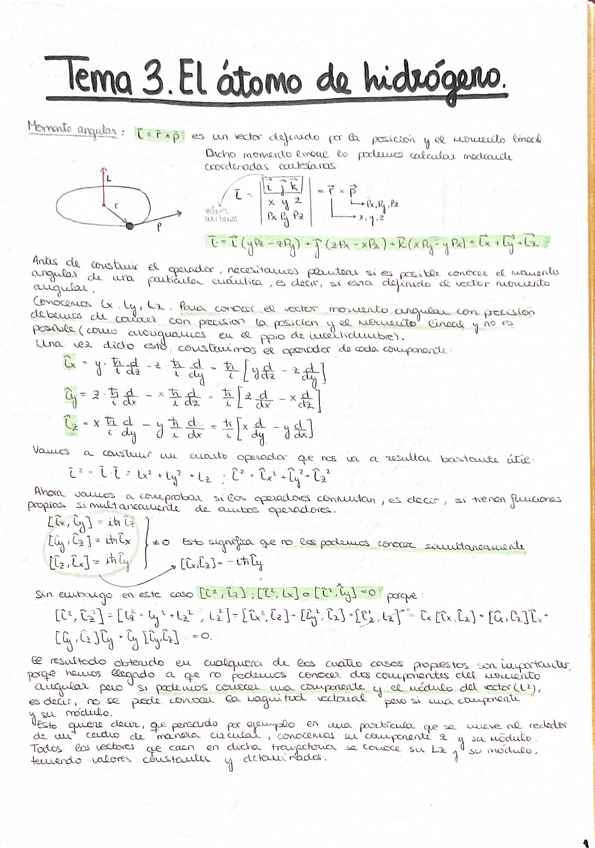 Tema 3. El átomo de hidrógeno.
Momento angular: L⃗ = r⃗ × p⃗ es un vector definido por la posición y el momento lineal.
Dicho momento lineal lo podemos calcular mediante
coordenadas cartesianas.
L
r
p
valores
unitarios
L⃗ = | i⃗ j⃗ k⃗ | = r⃗ × p⃗
x y z
Px Py Pz
Px, Py, Pz
x, y, z
L⃗ = i⃗ (yPz - zPy) + j⃗ (zPx - xPz) + k⃗ (xPy - yPx) = L⃗x + L⃗y + L⃗z
Antes de construir el operador, necesitamos plantear si es posible conocer el momento
angular de una partícula cuántica, es decir, si está definido el vector momento
angular.
Conocemos Lx, Ly, Lz. Para conocer el vector momento angular con precisión
debemos de conocer con precisión la posición y el momento lineal y no es
posible (como averiguamos en el ppio de incertidumbre).
Una vez dicho esto, construimos el operador de cada componente:
L̂x = y · ħ/i d/dz - z · ħ/i d/dy = ħ/i [y d/dz - z d/dy]
L̂y = z · ħ/i d/dx - x ħ/i d/dz = ħ/i [z d/dx - x d/dz]
L̂z = x ħ/i d/dy - y ħ/i d/dx = ħ/i [x d/dy - y d/dx]
Vamos a construir un cuarto operador que nos va a resultar bastante útil:
L² = L⃗ · L⃗ = Lx² + Ly² + Lz ; L̂² = L̂x² + L̂y² + L̂z²
Ahora vamos a comprobar si los operadores conmutan, es decir, si tienen funciones
propias simultáneamente de ambos operadores.
[L̂x, L̂y] = iħ L̂z
[L̂y, L̂z] = iħ L̂x ≠ 0 Esto significa que no los podemos conocer simultáneamente
[L̂z, L̂x] = iħ L̂y [L̂x, L̂z] = -iħ L̂y
Sin embargo en este caso [L̂², L̂z] ; [L̂², Lx] o [L̂², L̂y] = 0 porque:
[L̂², L̂z] = [Lx² + Ly² + Lz², Lz] = [L̂x², L̂z] + [L̂y², L̂z] + [L̂z², Lz] = L̂x [L̂x, L̂z] + [L̂x, L̂z] L̂x +
[L̂y, L̂z] L̂y + L̂y [L̂y, L̂z] = 0.
El resultado obtenido en cualquiera de los cuatro casos propuestos son importantes,
porque hemos llegado a que no podemos conocer dos componentes del momento
angular pero si podemos conocer una componente y el módulo del vector (L²),
es decir, no se puede conocer la magnitud vectorial pero si una componente
y su módulo.
Esto quiere decir, que pensando por ejemplo en una partícula que se mueve al rededor
de un centro de manera circular, conocemos su componente z y su módulo.
Todos los vectores que caen en dicha trayectoria se conoce su Lz y su módulo,
teniendo valores constantes y determinados.